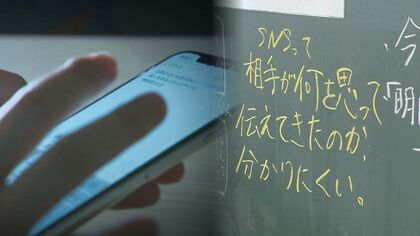 SNSって
相手が何を思って
伝えてきたのか
分かりにくい。
今
「明